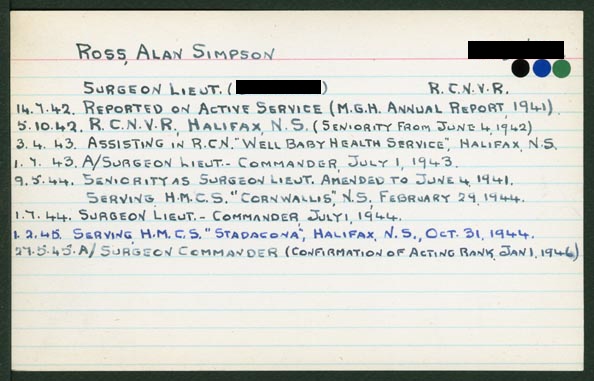 ROSS, ALAN SIMPSON
SURGEON LIEUT. ( ) R.C.N.V.R.
14.7.42. REPORTED ON ACTIVE SERVICE (M.G.H. ANNUAL REPORT, 1941)
5.10.42. R.C.N.V.R., HALIFAX, N.S. (SENIORITY FROM JUNE 4, 1942)
3.4.43. ASSISTING IN R.C.N. "WELL BABY HEALTH SERVICE", HALIFAX, N.S.
1.7.43. A/SURGEON LIEUT.- COMMANDER, JULY 1, 1943.
9.5.44. SENIORITY AS SURGEON LIEUT. AMENDED TO JUNE 4, 1941.
SERVING, H.M.C.S. "CORNWALLIS", N.S., FEBRUARY 29, 1944.
1.7.44. SURGEON LIEUT.- COMMANDER, JULY 1, 1944.
1.2.45. SERVING, H.M.C.S. "STADACONA", HALIFAX, N.S., OCT. 31, 1944.
27.5.45. A/SURGEON COMMANDER (CONFIRMATION OF ACTING RANK, JAN 1, 1946)